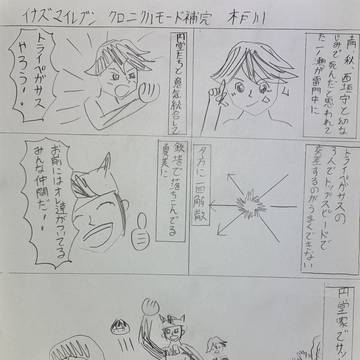 イナズマイレブン クロニクルモード補完 木戸川
土門、秋、西垣等と幼な
じみで死んだと思われて
た一ノ瀬が雷門中に
円堂たちと意気統合して
トライペガサス
やろう!
トライペガサスの
3人でトップスピードで
交差するのがうまくできない
夕方に一回解散
鉄塔で落ちこんでる
夏美に
お前にはオレ達がついてる
みんな仲間だ!
円堂家でサ